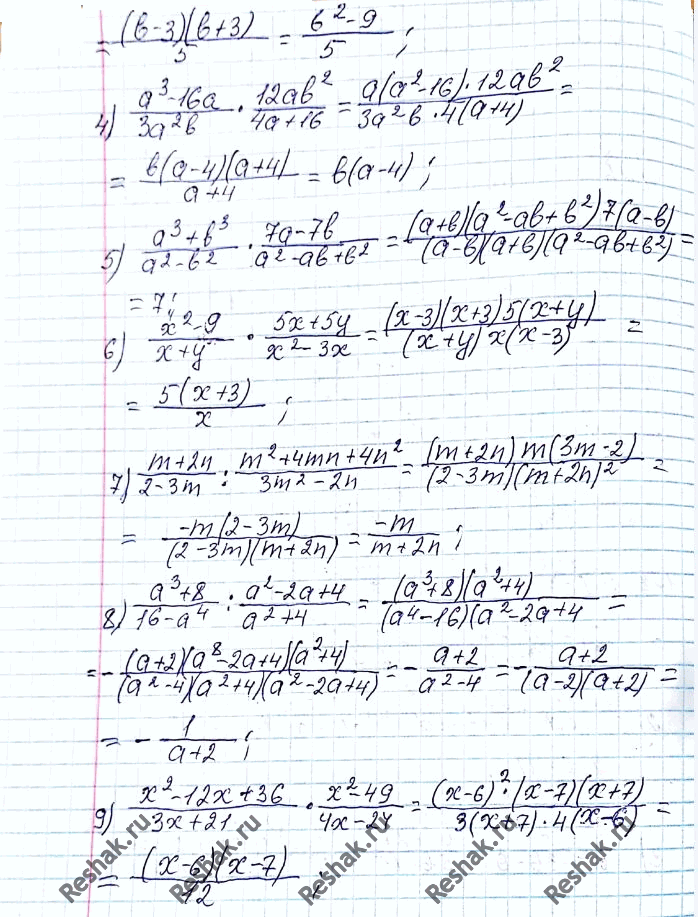 = (в-3)(в+3)/5 = (в²-9)/5 ;
4) (a³-16a)/(3a²в) · (12aв²)/(4a+16) = (a(a²-16)·12aв²)/(3a²в·4(a+4)) =
= (в(a-4)(a+4))/(a+4) = в(a-4) ;
5) (a³+в³)/(a²-в²) · (7a-7в)/(a²-aв+в²) = ((a+в)(a²-aв+в²)7(a-в))/((a-в)(a+в)(a²-aв+в²)) =
= 7 ;
6) (x²-9)/(x+y) · (5x+5y)/(x²-3x) = ((x-3)(x+3)5(x+y))/((x+y)x(x-3)) =
= (5(x+3))/x ;
7) (m+2n)/(2-3m) : (m²+4mn+4n²)/(3m²-2n) = ((m+2n)m(3m-2))/((2-3m)(m+2n)²) =
= (-m(2-3m))/((2-3m)(m+2n)) = (-m)/(m+2n) ;
8) (a³+8)/(16-a⁴) : (a²-2a+4)/(a²+4) = ((a³+8)(a²+4))/((a⁴-16)(a²-2a+4 =
= - ((a+2)(a⁸-2a+4)(a²+4))/((a²-4)(a²+4)(a²-2a+4)) = - (a+2)/(a²-4) = - (a+2)/((a-2)(a+2)) =
= - 1/(a+2) ;
9) (x²-12x+36)/(3x+21) · (x²-49)/(4x-24) = ((x-6)²·(x-7)(x+7))/(3(x+7)·4(x-6)) =
= ((x-6)(x-7))/12
Reshak.ru Reshak.ru Reshak.ru Reshak.ru Reshak.ru